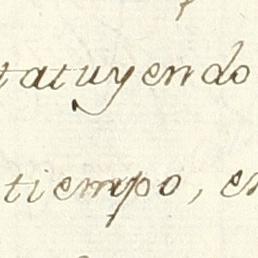 tatuyendo
tiempo, en